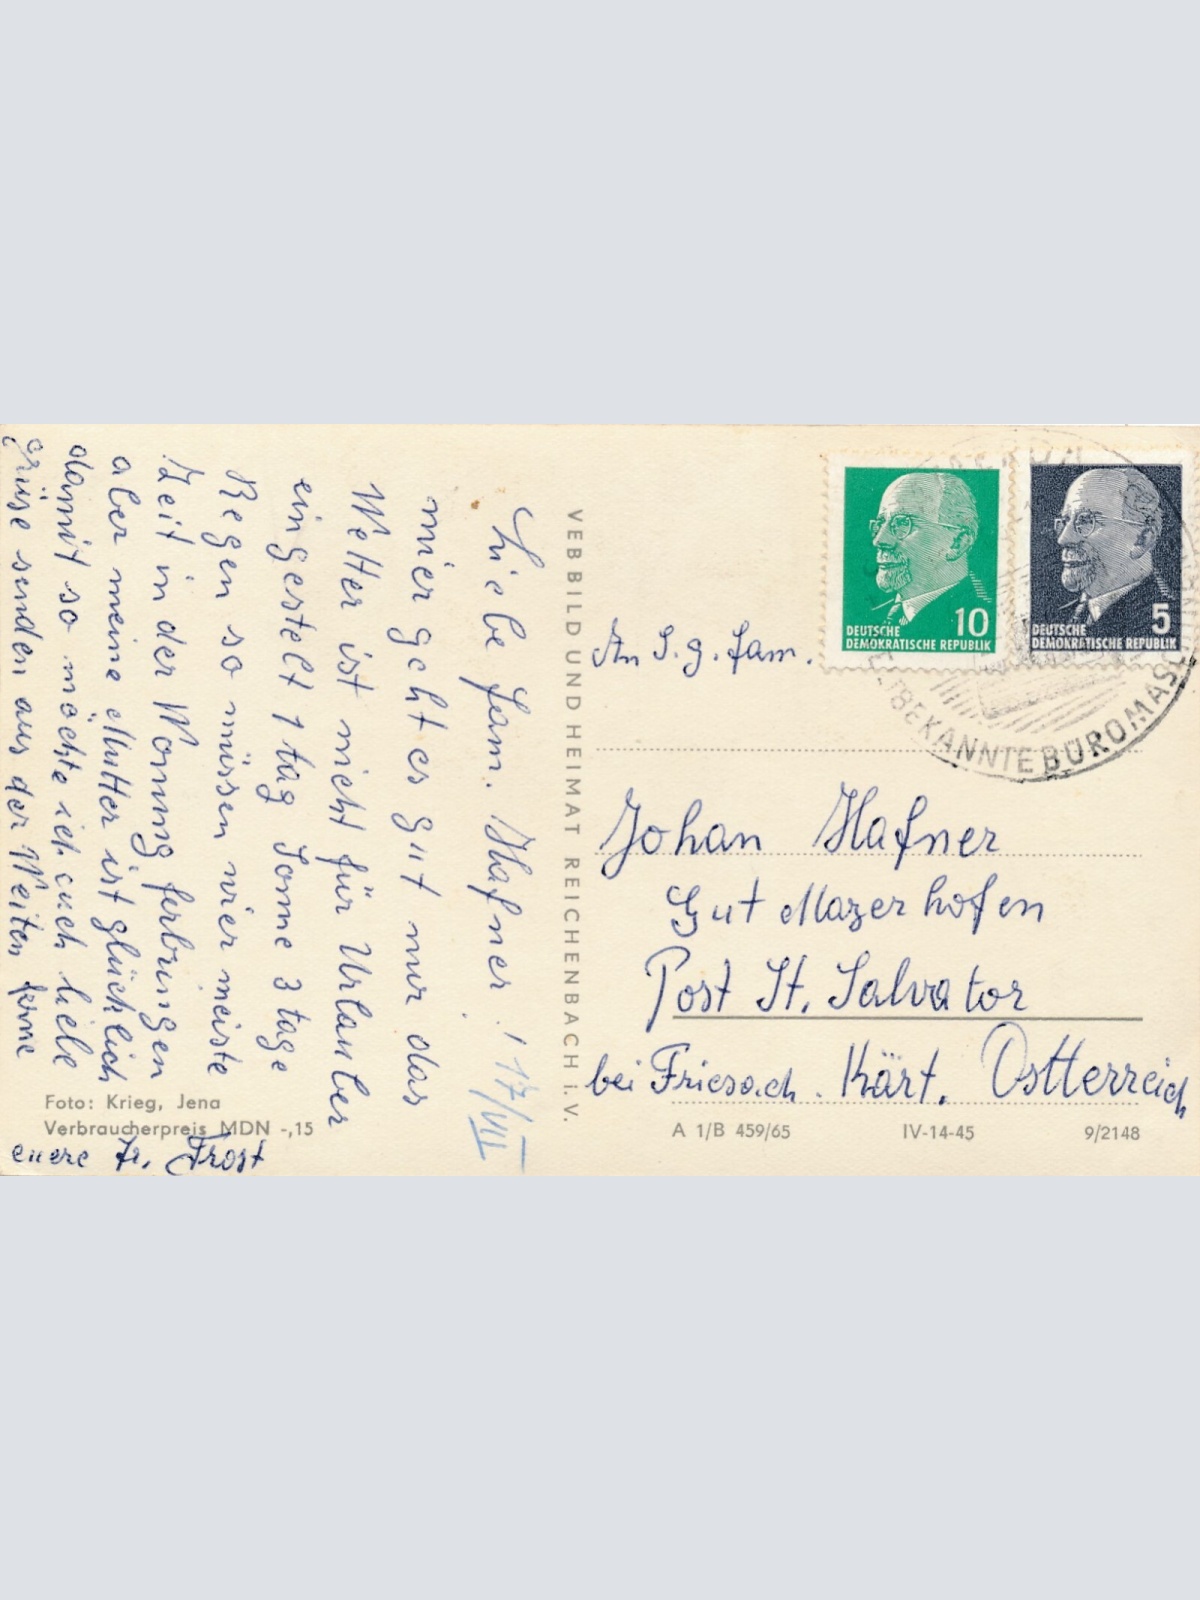 Liebe Fam. Hafner! 17/VIII
mier geht es gut nur das
Wetter ist nicht für Urlauber
eingestelt 1 tag Sonne 3 tage
Regen so müssen wier meiste
Zeit in der Wonung ferbringen
aber meine Mutter ist glücklich
damit so möchte ich euch liebe
grüse senden aus der Weiten ferne
euere Fr. Frost
Foto: Krieg, Jena
Verbraucherpreis MDN -,15
VEB BILD UND HEIMAT REICHENBACH i. V.
10
DEUTSCHE
DEMOKRATISCHE REPUBLIK
5
DEUTSCHE
DEMOKRATISCHE REPUBLIK
WELTBEKANNTE BÜROMASCHINEN
An S. g. Fam.
Johan Hafner
Gut Mazerhofen
Post St. Salvator
bei Friesach. Kärt. Ostterreich
A 1/B 459/65 IV-14-45 9/2148